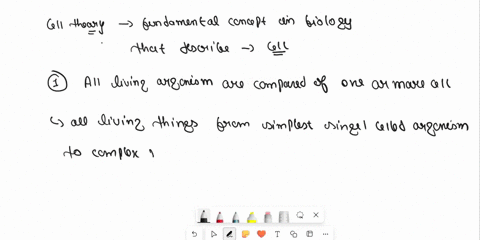 Cell theory → fundamental concept in biology
that describe → cell
① All living organism are compared of one or more cell
↳ all living things from simplest singel celled organism
to complex